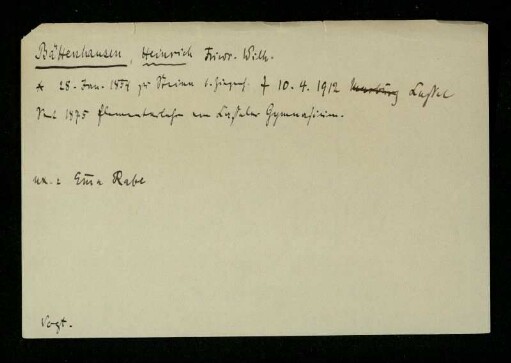 Bättenhausen, Heinrich Friedr. Wilh.
* 28. Jan. 1854 zu b. † 10.4.1912 Marburg Cassel
Seit 1875 Elementarlehrer am Casseler Gymnasium.
ux.: Rabe
Vogt.